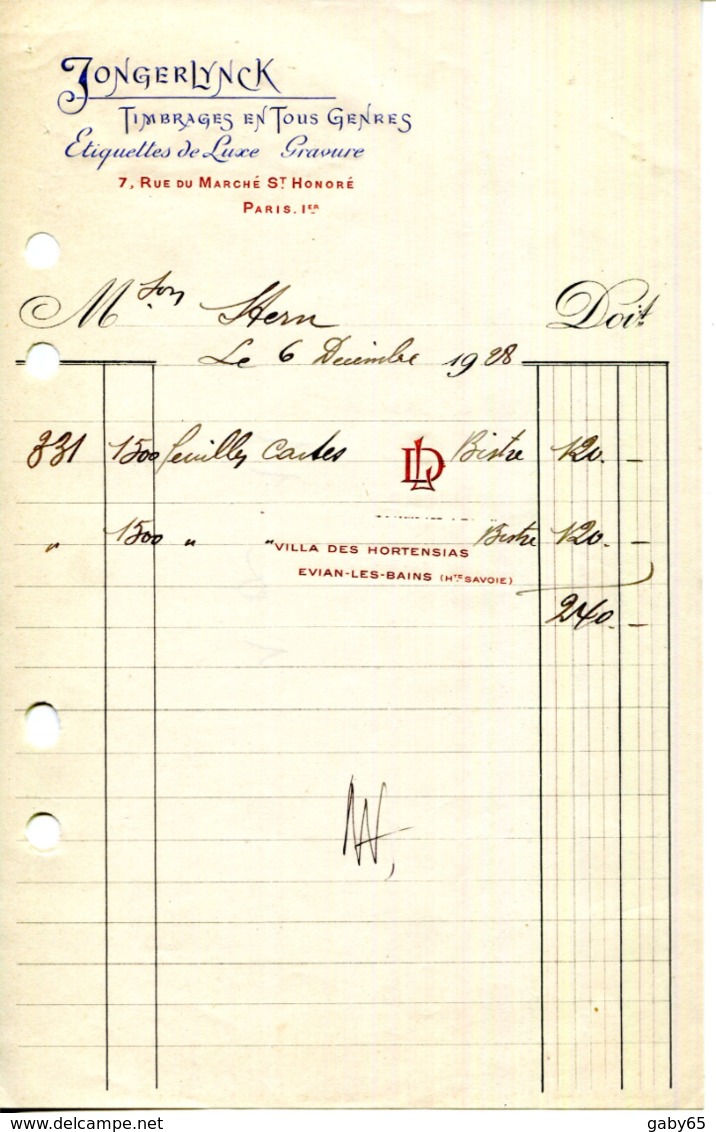 JONGERLYNCK
TIMBRAGES EN TOUS GENRES
Etiquettes de Luxe Gravure
7, RUE DU MARCHÉ ST HONORÉ
PARIS. IER
Mson Stern Doit
Le 6 Décembre 1928
331 1500 feuilles cartes LD Bistre 120. —
" 1500 " " VILLA DES HORTENSIAS Bistre 120. —
EVIAN-LES-BAINS (HTE SAVOIE)
240. —
delcampe.net
gaby65